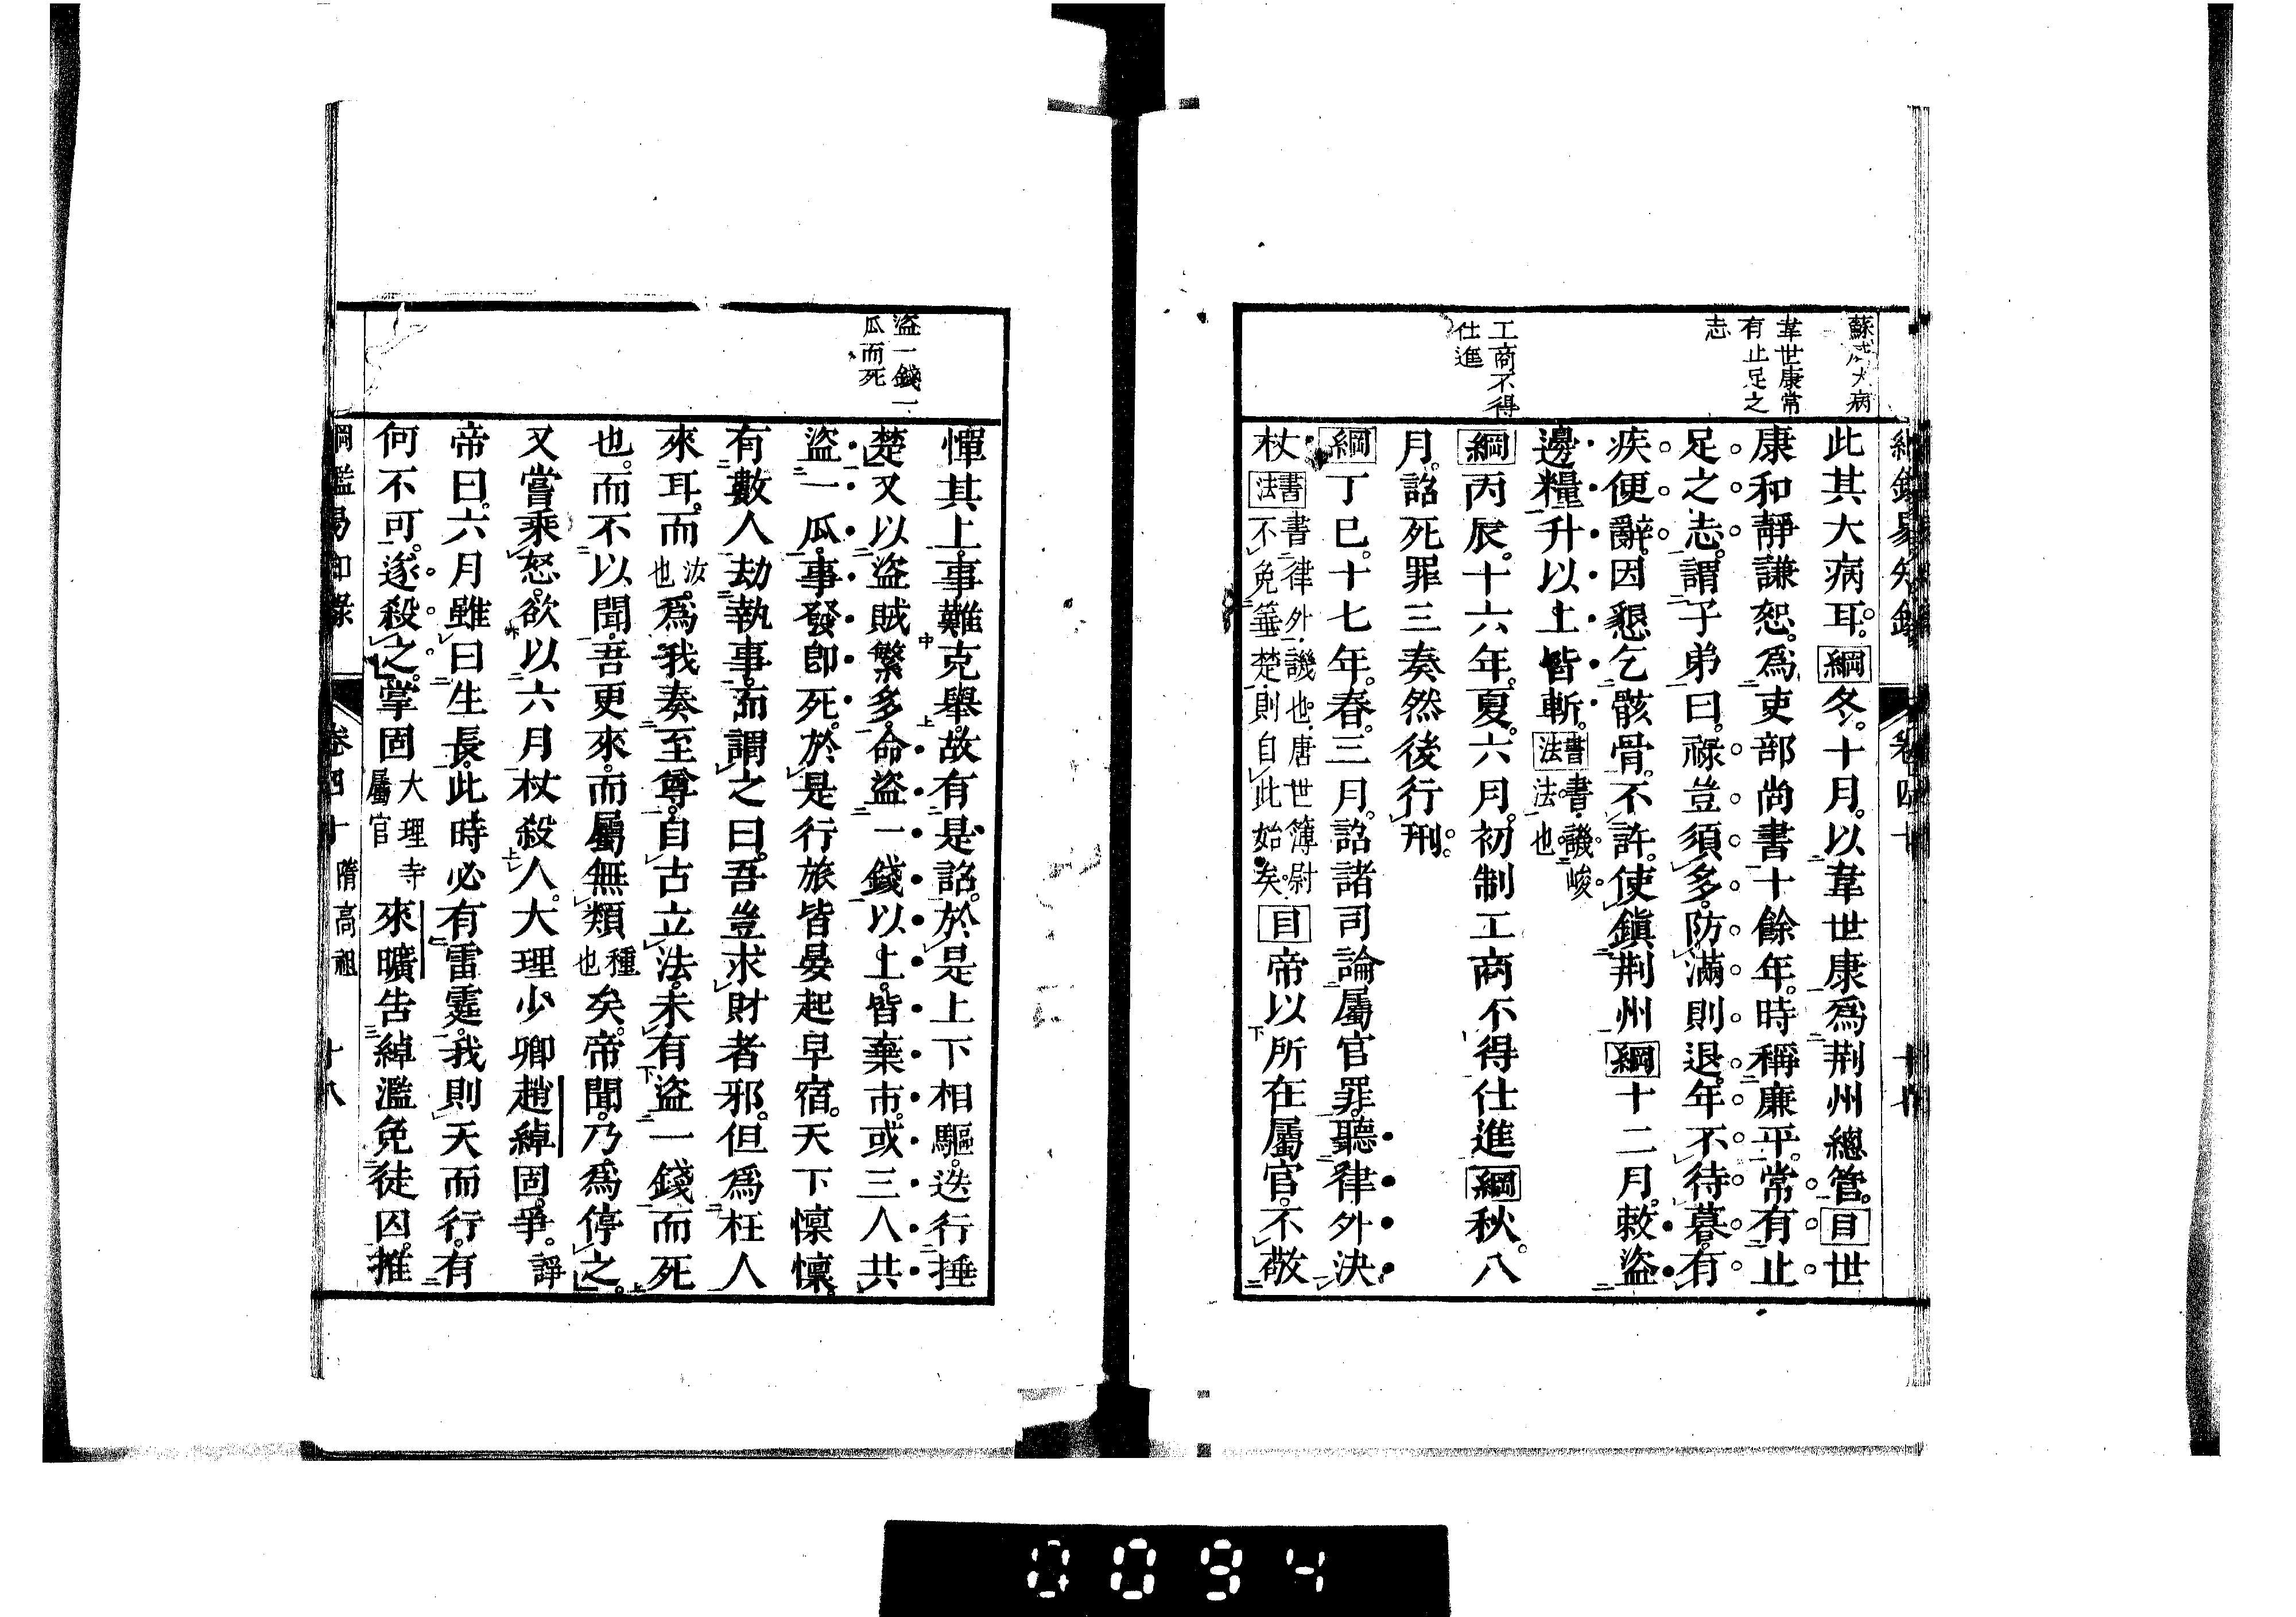 綱鑑易知錄 卷四十
蘇威大病
韋世康常
有止足之
志
工商不得
仕進
此其大病耳。綱冬。十月。以韋世康爲荆州總管。目世
康和靜謙恕。爲吏部尚書十餘年。時稱廉平。常有止
足之志。謂子弟曰。祿豈須多。防滿則退。年不待暮。有
疾便辭。因懇乞骸骨。不許。使鎭荆州綱十二月。敕盜
邊糧升以上皆斬。書法書。譏峻法也。
綱丙辰。十六年。夏。六月。初制工商不得仕進綱秋。八
月。詔死罪三奏然後行刑。
綱丁巳。十七年。春。三月。詔諸司論屬官罪。聽律外決
杖書法書律外。譏也。唐世簿尉不免箠楚。則自此始矣。目帝以所在屬官。不敬
盜一錢一
瓜而死
憚其上。事難克舉。故有是詔。於是上下相驅。迭行捶
楚。又以盜賊繁多。命盜一錢以上。皆棄市。或三人共
盜一瓜。事發卽死。於是行旅皆晏起早宿。天下懍懍。
有數人劫執事。而謂之曰。吾豈求財者邪。但爲枉人
來耳。而汝也。爲我奏至尊。自古立法。未有盜一錢而死
也。而不以聞。吾更來。而屬無類種也矣。帝聞。乃爲停之。
又嘗乘怒。欲以六月杖殺人。大理少卿趙綽固爭。諍
帝曰。六月雖曰生長。此時必有雷霆。我則天而行。有
何不可。遂殺之。掌固大理寺屬官來曠告綽濫免徒囚。推
綱鑑易知錄 卷四十 隋高祖 十八
0094